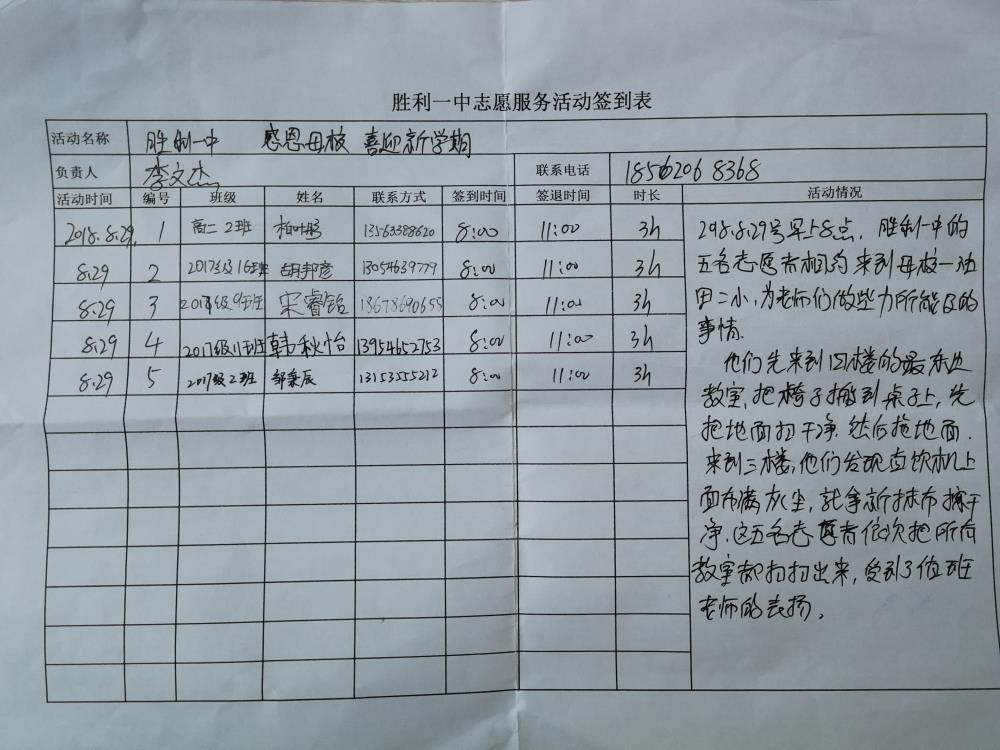 胜利一中志愿服务活动签到表
活动名称 胜利一中 感恩母校 喜迎新学期
负责人 李文杰 联系电话 18562068368
活动时间 编号 班级 姓名 联系方式 签到时间 签退时间 时长 活动情况
2018.8.29. 1 高二2班 13563388620 8:00 11:00 3h
8.29 2 2017级16班 胡邦彦 13054639779 8:00 11:00 3h
8.29 3 2017级 班 宋睿铭 18678690655 8:00 11:00 3h
8.29 4 2017级11班 韩秋怡 13954652753 8:00 11:00 3h
8.29 5 2017级2班 邹秉辰 13153555212 8:00 11:00 3h
2018.8.29号早上8点,胜利一中的
五名志愿者相约来到母校一油
田二小,为老师们做些力所能及的
事情.
他们先来到四楼的最东边
教室,把椅子搬到桌子上,先
把地面扫干净.然后拖地面.
来到三楼,他们发现直饮机上
面布满灰尘,就拿新抹布擦干
净.这五名志愿者依次把所有
教室都打扫出来,受到了值班
老师的表扬.